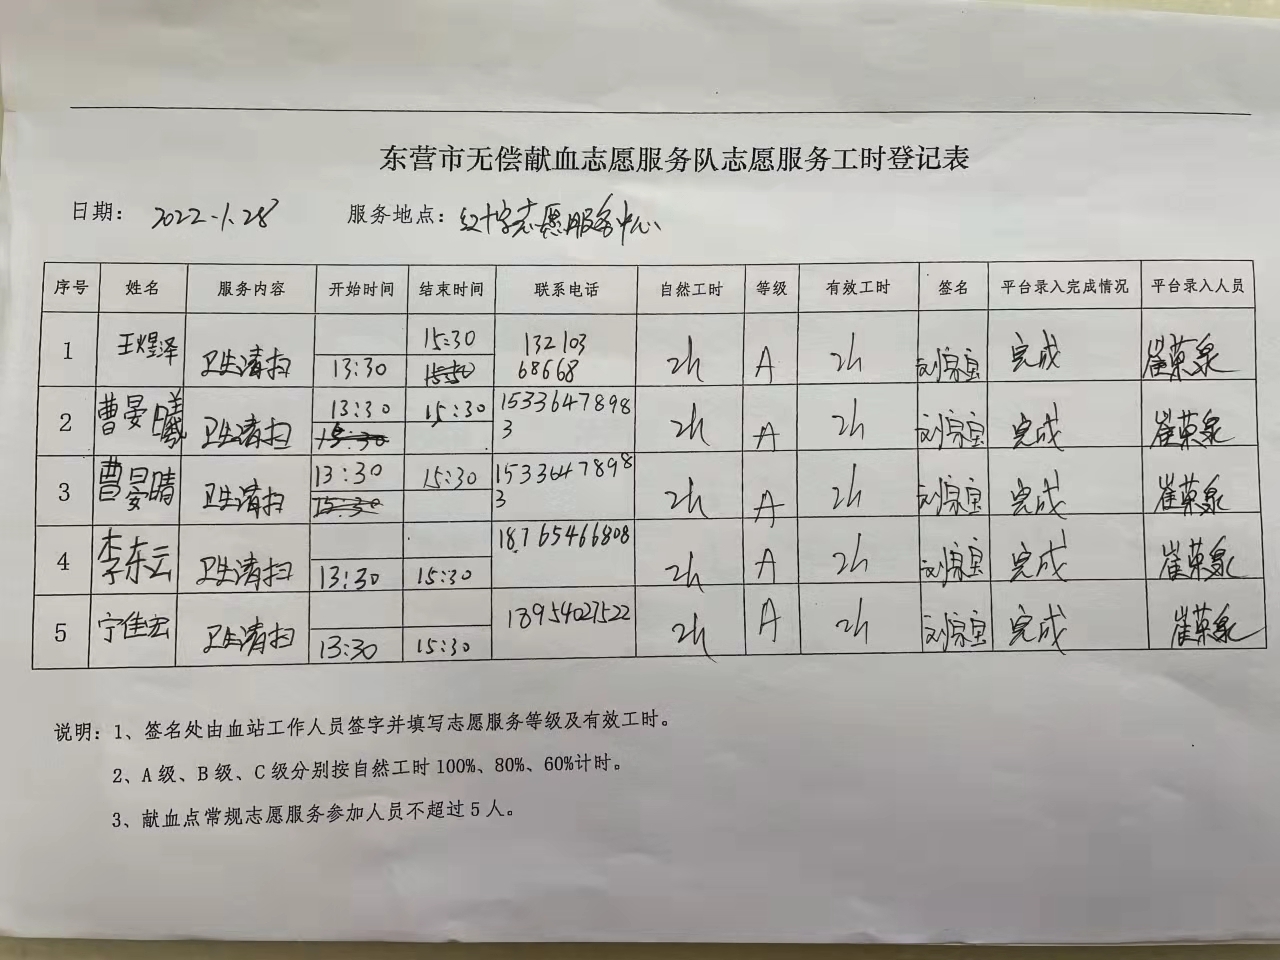 东营市无偿献血志愿服务队志愿服务工时登记表
日期： 2022.1.28 服务地点：红十字志愿服务中心
序号 姓名 服务内容 开始时间 结束时间 联系电话 自然工时 等级 有效工时 签名 平台录入完成情况 平台录入人员
1 王煜泽 卫生清扫 13:30 15:30 132103 68668 2h A 2h 完成 崔荣泉
2 曹晏曦 卫生清扫 13:30 15:30 15336478983 2h A 2h 完成 崔荣泉
3 曹晏晴 卫生清扫 13:30 15:30 15336478983 2h A 2h 完成 崔荣泉
4 李东云 卫生清扫 13:30 15:30 18765466808 2h A 2h 完成 崔荣泉
5 宁佳宏 卫生清扫 13:30 15:30 18954027522 2h A 2h 完成 崔荣泉
说明：1、签名处由血站工作人员签字并填写志愿服务等级及有效工时。
2、A级、B级、C级分别按自然工时100%、80%、60%计时。
3、献血点常规志愿服务参加人员不超过5人。